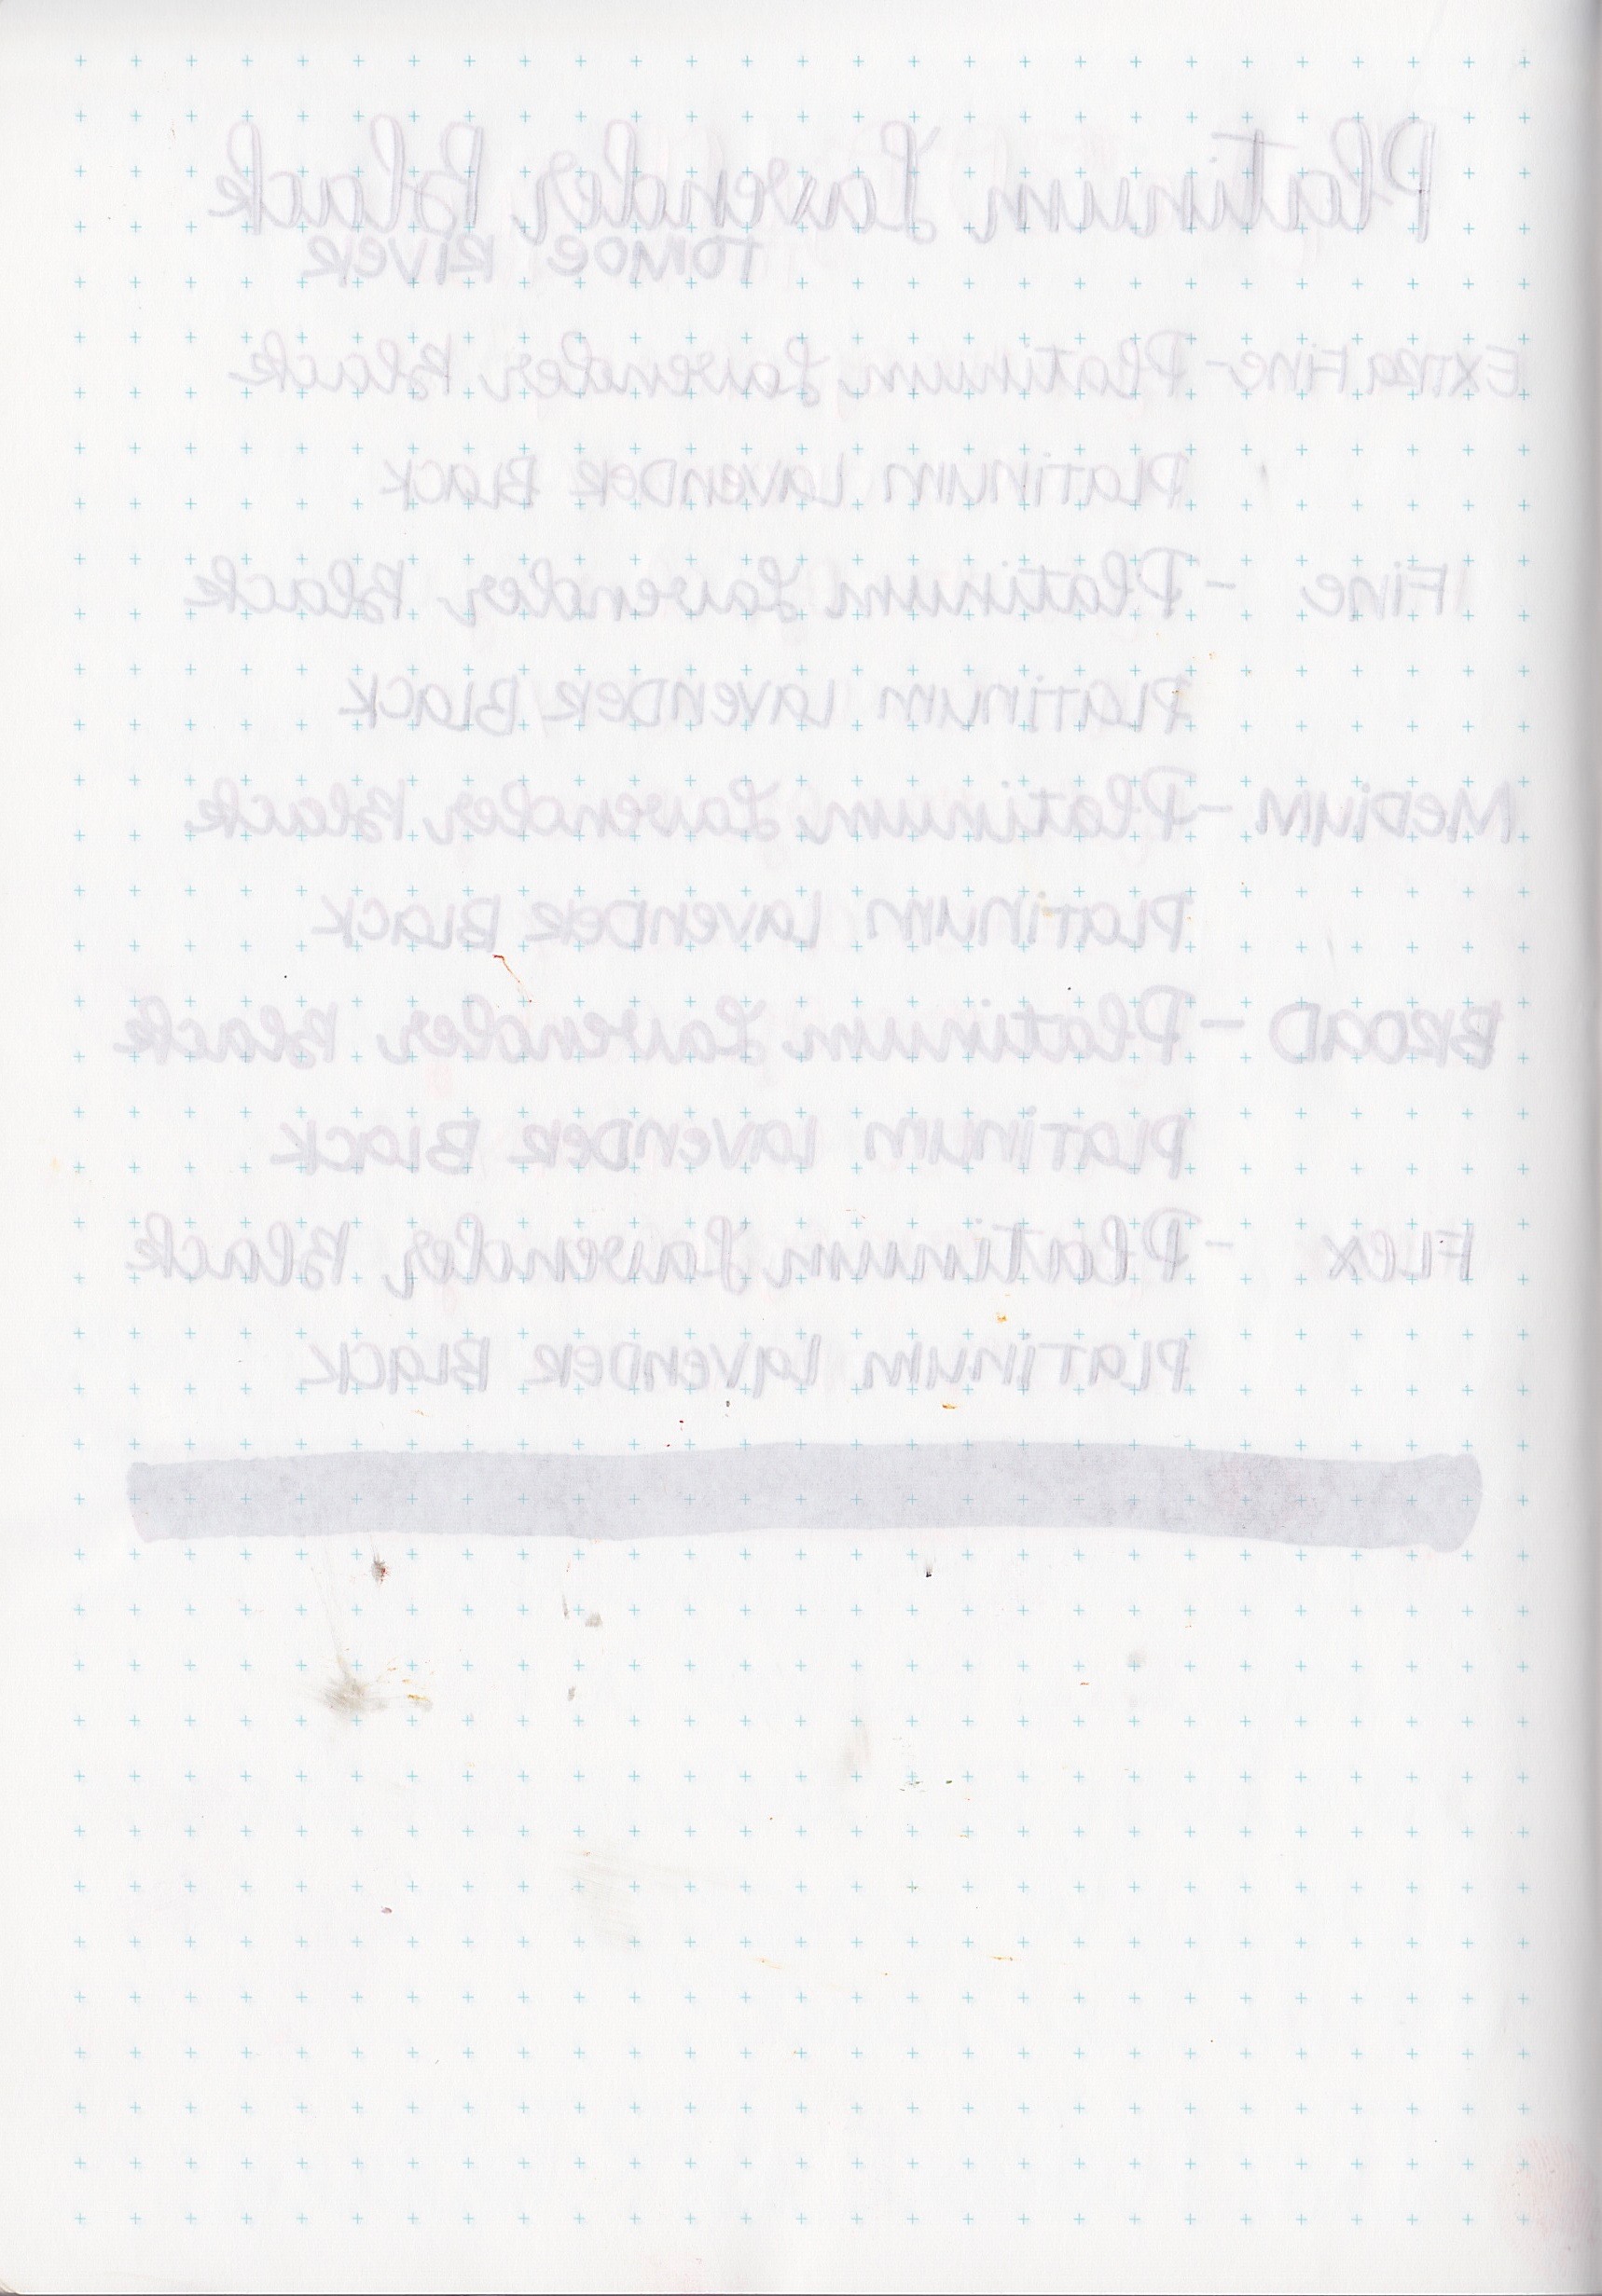 Platinum Lavender Black
Tomoe River
Extra Fine - Platinum Lavender Black
Platinum Lavender Black
Fine - Platinum Lavender Black
Platinum Lavender Black
Medium - Platinum Lavender Black
Platinum Lavender Black
Broad - Platinum Lavender Black
Platinum Lavender Black
Flex - Platinum Lavender Black
Platinum Lavender Black